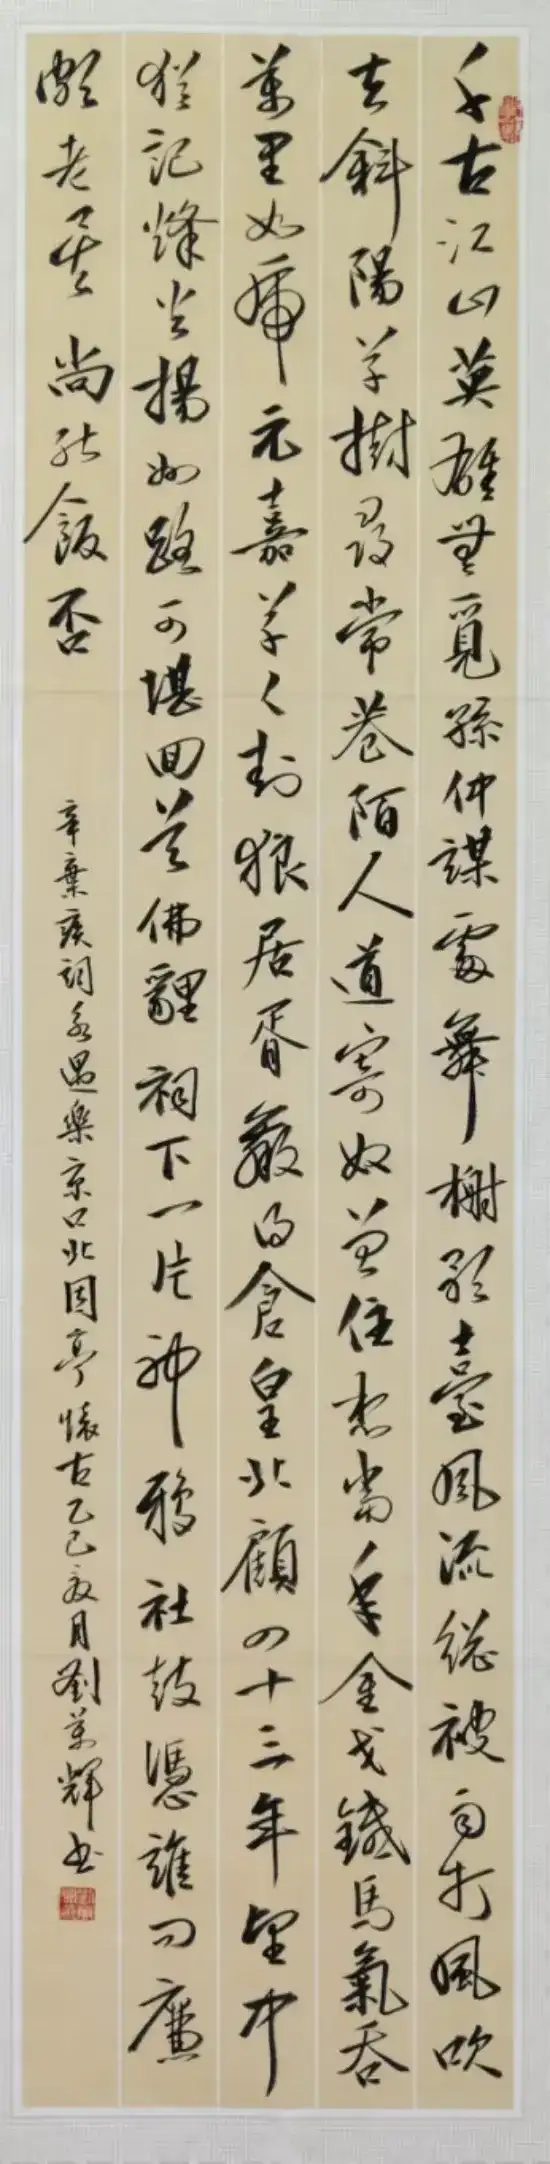 千古江山英雄無覓孫仲謀處舞榭歌臺風流總被雨打風吹
去斜陽草樹尋常巷陌人道寄奴曾住想當年金戈鐵馬氣吞
萬里如虎元嘉草々封狼居胥贏得倉皇北顧四十三年望中
猶記烽火揚州路可堪回首佛貍祠下一片神鴉社鼓憑誰問廉
頗老矣尚能飯否
辛棄疾詞永遇樂京口北固亭懷古乙巳夏月劉萬輝書